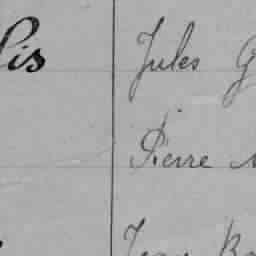 lis Jules G
Pierre
Jean